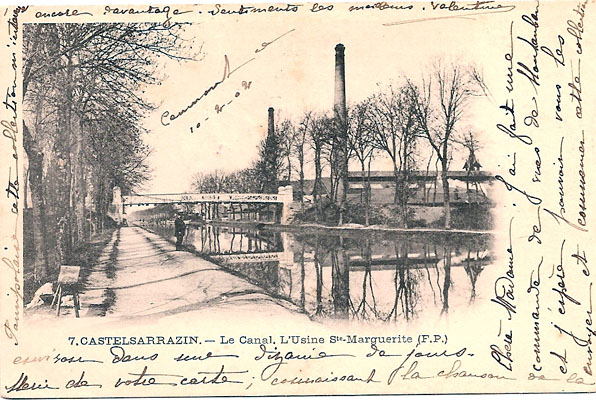 Chère Madame, j'ai fait une
commande de vues de Montauban
et j'espère pouvoir vous les
envoyer et commencer cette collec.
environ dans une dizaine de jours.
Merci de votre carte, connaissant la chanson de la
cette collection m'
encore davantage. Sentiments les meilleurs. Valentine
10-2-02
7. CASTELSARRAZIN. — Le Canal. L'Usine Ste-Marguerite (F.P.)